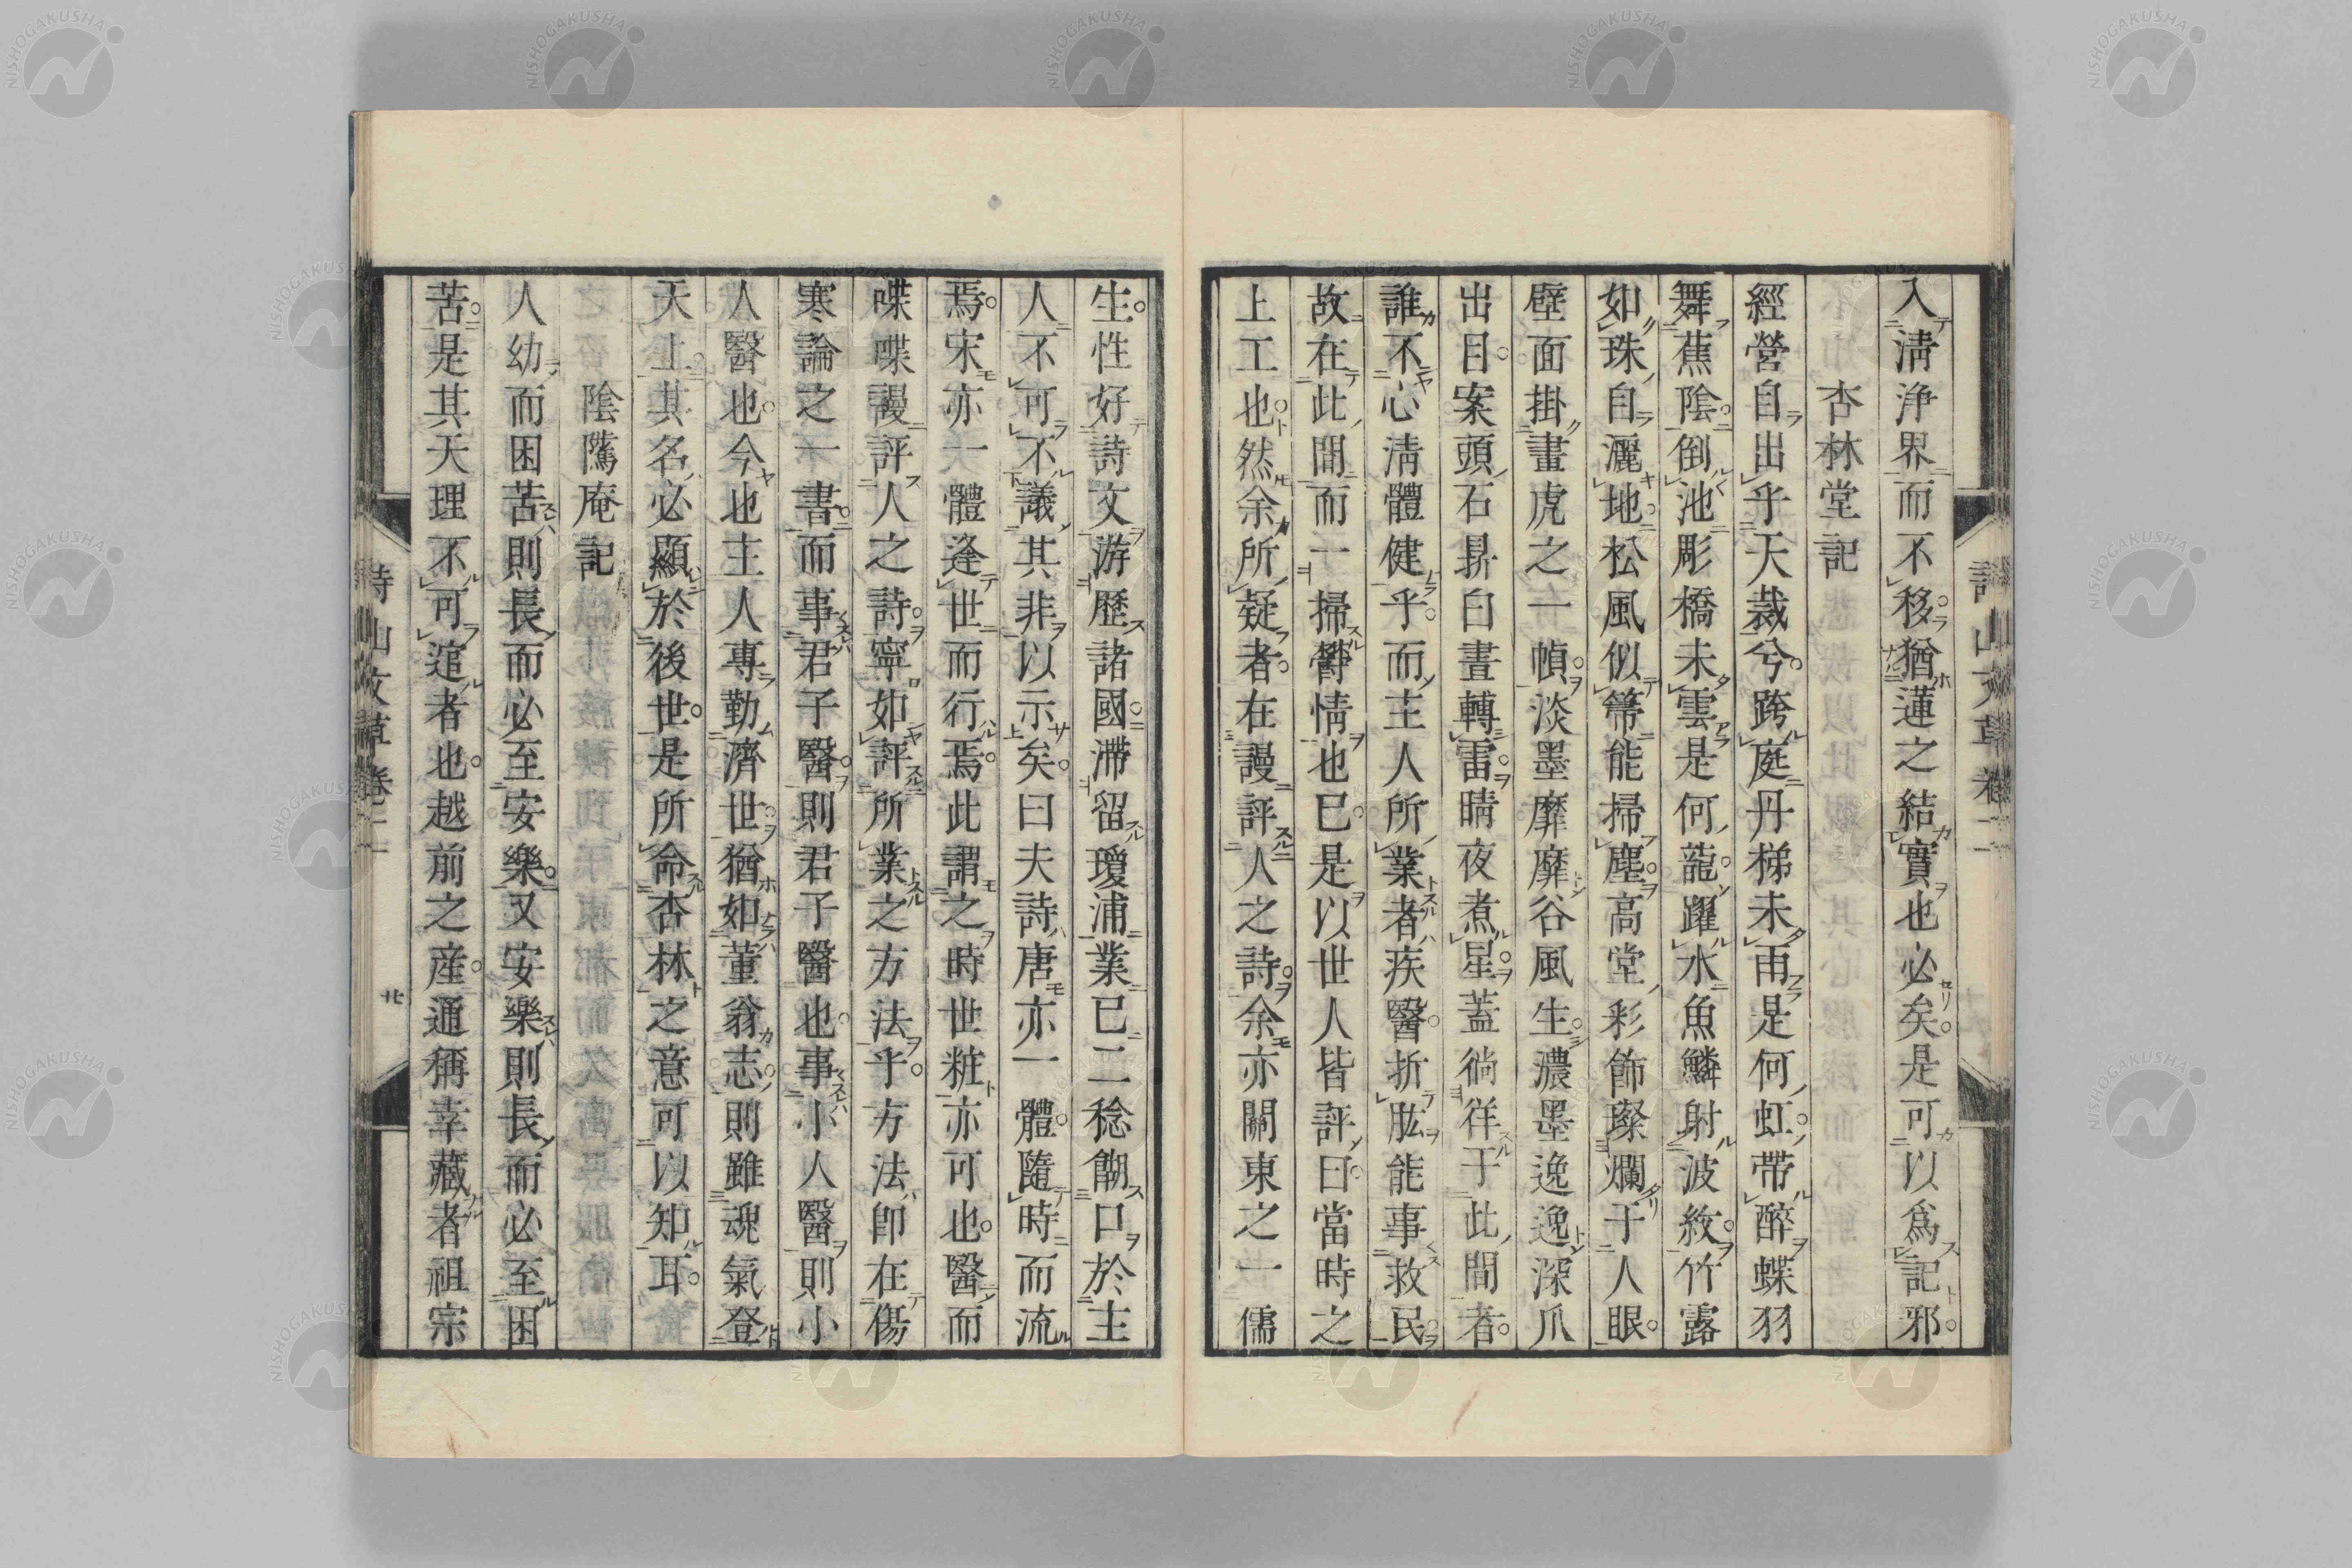 入淸淨界而不移猶蓮之結實也必矣是可以爲記邪
杏林堂記
經營自出乎天裁兮跨庭丹梯未雨是何虹帶醉蝶羽
舞蕉陰倒池彫橋未雲是何龍躍水魚鱗射波紋竹露
如珠自灑地松風似箒能掃塵高堂彩飾璨爛于人眼
壁面掛畫虎之一幀淡墨靡靡谷風生濃墨逸逸深爪
出目案頭石鼎白晝轉雷晴夜煮星蓋徜徉于此間者
誰不心淸體健乎而主人所業者疾醫折肱能事救民
故在此間而一掃鬱情也已是以世人皆評曰當時之
上工也然余所疑者在謾評人之詩余亦關東之一儒
生性好詩文游歷諸國滯留瓊浦業已二稔餬口於主
人不可不議其非以示矣曰夫詩唐亦一體隨時而流
焉宋亦一體逢世而行焉此謂之時世粧亦可也醫而
喋喋謾評人之詩寧如評所業之方法乎方法卽在傷
寒論之一書而事君子醫則君子醫也事小人醫則小
人醫也今也主人專勤濟世猶如董翁志則雖魂氣登
天上其名必顯於後世是所命杏林之意可以知耳
陰隲庵記
人幼而困苦則長而必至安樂又安樂則長而必至困
苦是其天理不可逭者也越前之産通稱幸藏者祖宗
詩山文草卷二
廿